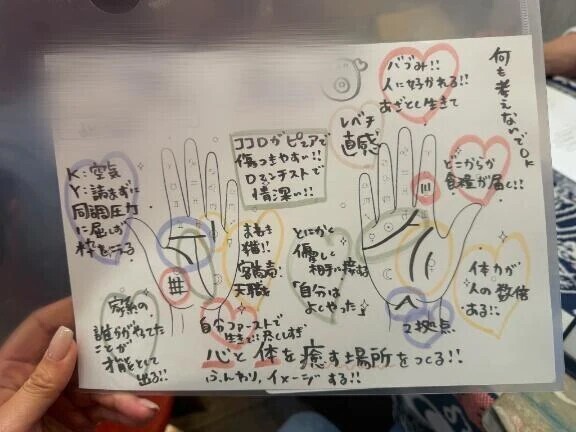 何も考えないでOK
バブみ!!
人に好かれる!!
あざとく生きて
レベチ
直感
ココロがピュアで
傷つきやすい!!
ロマンチストで
情深い!!
どこからか
食糧が届く!!
K:空気
Y:読まずに
同調圧力
に屈しず
枠を
まねき
猫!!
客商売!
天職
とにかく
優しく
相手に接する
「自分は
よくやった」
体力が
人の数倍
ある!!
家系の
誰かがやってた
ことが
才能として
出る!!
自分ファーストで
生きて!尽しすぎ
2拠点
心と体を癒す場所をつくる!!
ふんわり、イメージする!!